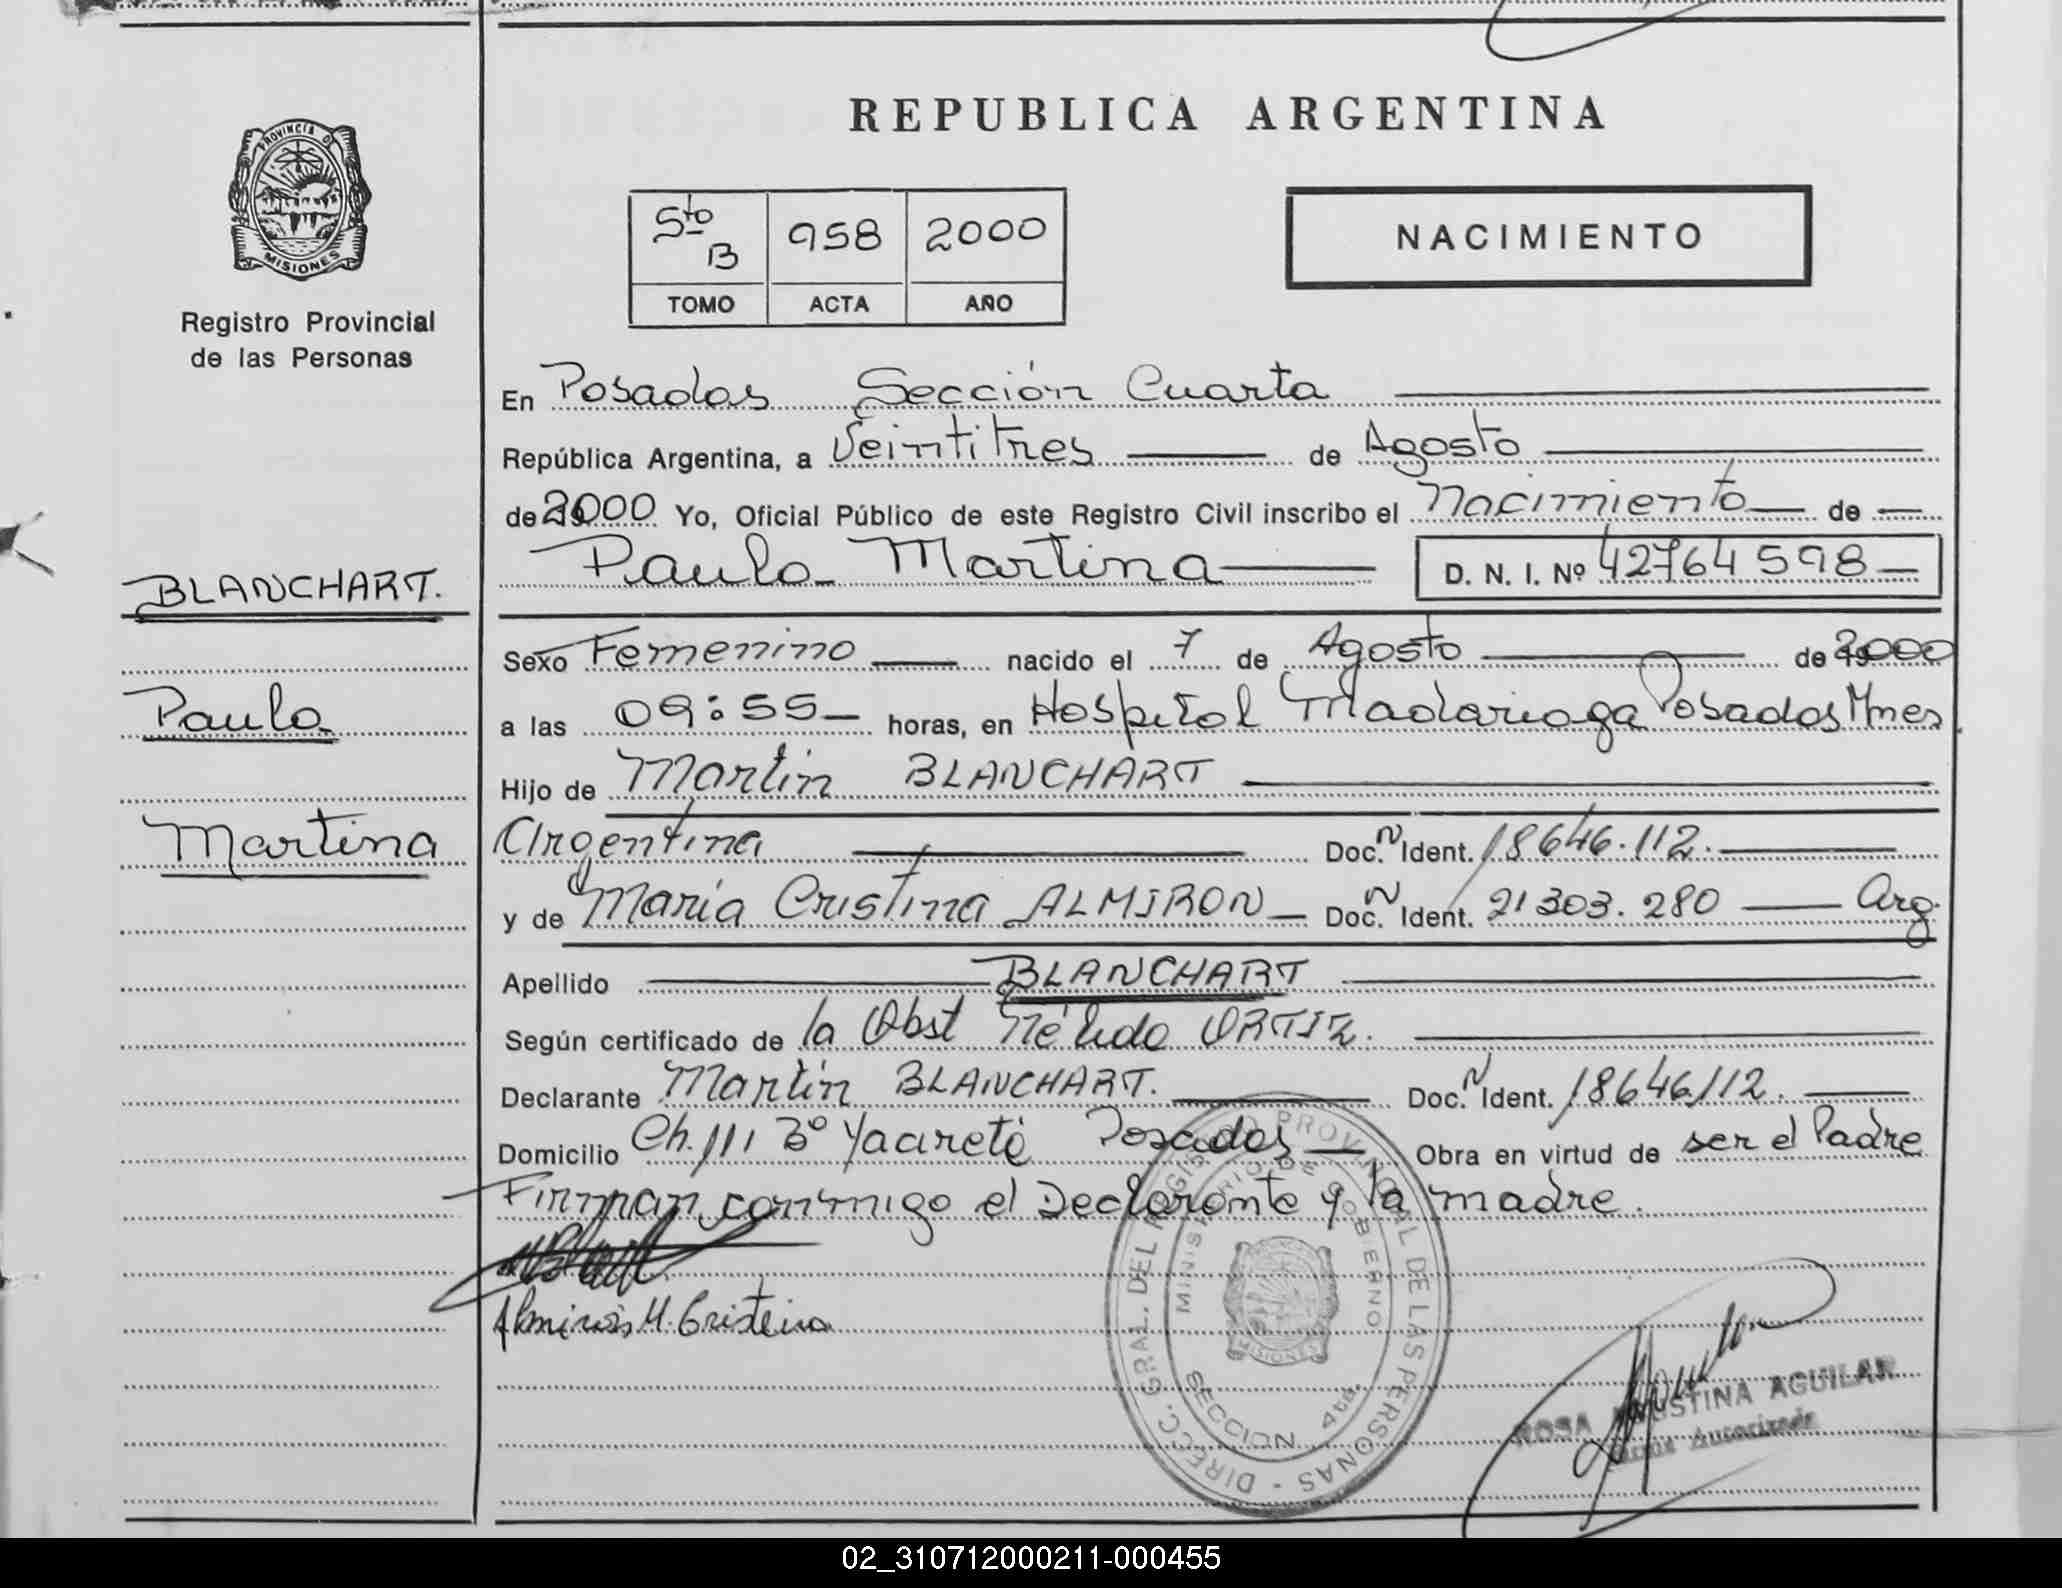 REPUBLICA ARGENTINA
PROVINCIA DE
MISIONES
Registro Provincial
de las Personas
Sto B 958 2000
TOMO ACTA AÑO
NACIMIENTO
En Posadas Sección Cuarta
República Argentina, a Veintitres de Agosto
de 2000 Yo, Oficial Público de este Registro Civil inscribo el Nacimiento de
Paula Martina D. N. I. Nº 42764598
BLANCHART.
Paula
Martina
Sexo Femenino nacido el 7 de Agosto de 2000
a las 09:55 horas, en Hospital Madariaga Posadas Mnes
Hijo de Martín BLANCHART
Argentina Doc. N Ident. 18646.112.
y de María Cristina ALMIRON Doc. N Ident. 21303.280 Arg.
Apellido BLANCHART
Según certificado de la Obst Nélida ORTIZ.
Declarante Martín BLANCHART. Doc. N Ident. 18646112.
Domicilio Ch. 111 Bº Yacireté Posadas Obra en virtud de ser el Padre
Firman conmigo el Declarante y la madre.
Almirón M. Cristina
DIRECC. GRAL. DEL REGISTRO PROVINCIAL DE LAS PERSONAS -
MINISTERIO DE GOBIERNO
MISIONES
SECCION 4ta.
ROSA AGUSTINA AGUILAR
Firma Autorizada
02_310712000211-000455